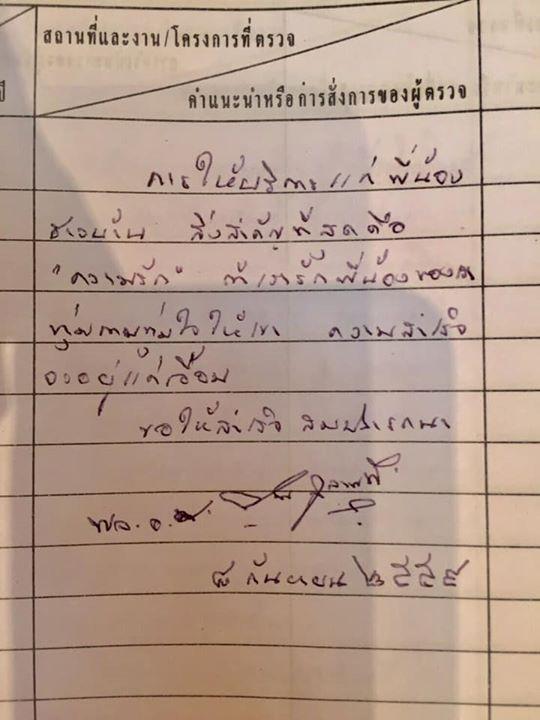 สถานที่และงาน/โครงการที่ตรวจ
คำแนะนำหรือการสั่งการของผู้ตรวจ
ปี
การให้บริการแก่พี่น้อง
ชาวบ้าน สิ่งสำคัญที่สุดคือ
"ความรัก" ถ้าเรารักพี่น้องของเรา
ทุ่มกายทุ่มใจให้เขา ความสำเร็จ
จะอยู่แค่เอื้อม
ขอให้สำเร็จ สมปรารถนา
พล.อ.
๘ กันยายน ๒๕๕๙